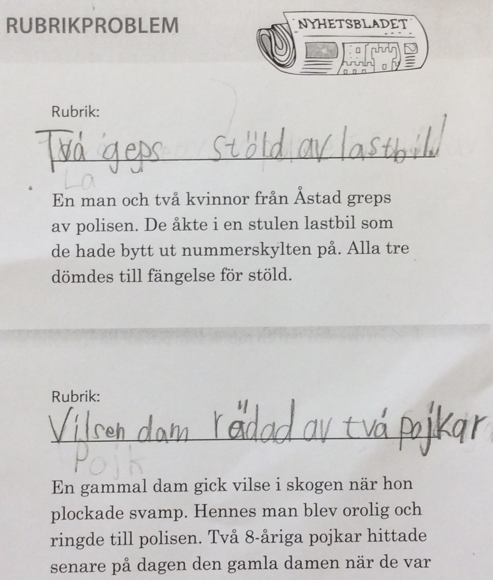 RUBRIKPROBLEM
NYHETSBLADET
Rubrik:
Två geps stöld av lastbil
La
En man och två kvinnor från Åstad greps
av polisen. De åkte i en stulen lastbil som
de hade bytt ut nummerskylten på. Alla tre
dömdes till fängelse för stöld.
Rubrik:
Vilsen dam rädad av två pojkar
Pojk
En gammal dam gick vilse i skogen när hon
plockade svamp. Hennes man blev orolig och
ringde till polisen. Två 8-åriga pojkar hittade
senare på dagen den gamla damen när de var